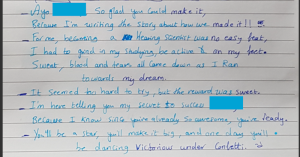 - Ayo So glad you could make it,
Because I'm writing the story about how we made it!!
For me, becoming a Hearing Scientist was no easy feat,
I had to good in my studying, be active & on my feet.
Sweat, blood and tears all came down as I Ran
towards my dream.
- It seemed too hard to try, but the reward was sweet.
- I'm here telling you my secret to success
Because I know since you're already so awesome, you're ready.
- You'll be a star, you'll make it big, and one day you'll
be dancing Victorious under Confetti.